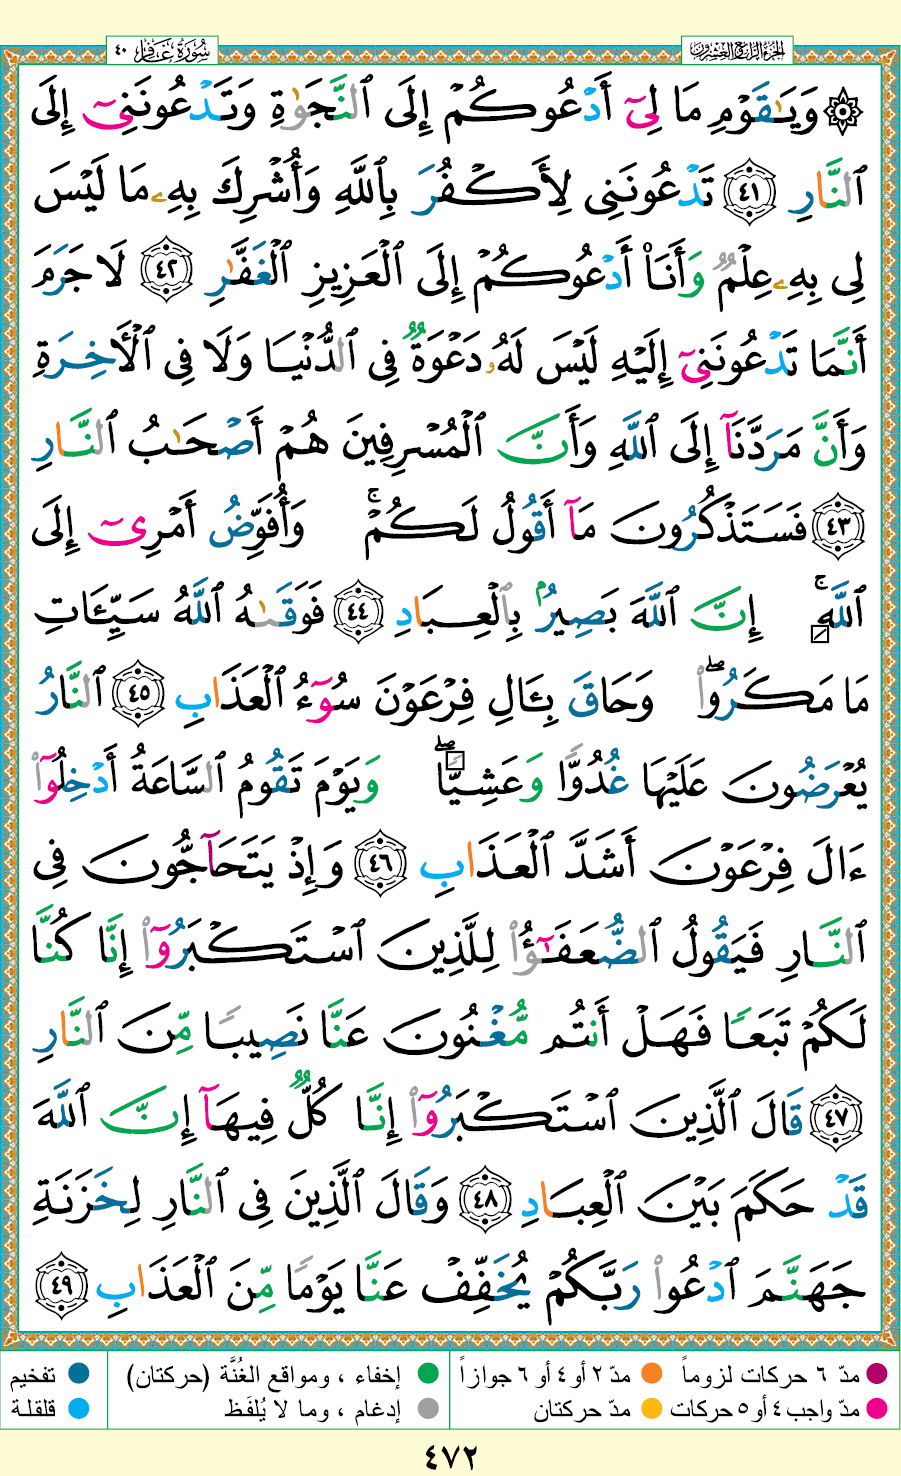 الجزء الرابع والعشرون
سُورَةُ غَافِر ٤٠
۞ وَيَٰقَوۡمِ مَا لِيٓ أَدۡعُوكُمۡ إِلَى ٱلنَّجَوٰةِ وَتَدۡعُونَنِيٓ إِلَى
ٱلنَّارِ ٤١ تَدۡعُونَنِي لِأَكۡفُرَ بِٱللَّهِ وَأُشۡرِكَ بِهِۦ مَا لَيۡسَ
لِي بِهِۦ عِلۡمٞ وَأَنَا۠ أَدۡعُوكُمۡ إِلَى ٱلۡعَزِيزِ ٱلۡغَفَّٰرِ ٤٢ لَا جَرَمَ
أَنَّمَا تَدۡعُونَنِيٓ إِلَيۡهِ لَيۡسَ لَهُۥ دَعۡوَةٞ فِي ٱلدُّنۡيَا وَلَا فِي ٱلۡأٓخِرَةِ
وَأَنَّ مَرَدَّنَآ إِلَى ٱللَّهِ وَأَنَّ ٱلۡمُسۡرِفِينَ هُمۡ أَصۡحَٰبُ ٱلنَّارِ
٤٣ فَسَتَذۡكُرُونَ مَآ أَقُولُ لَكُمۡۚ وَأُفَوِّضُ أَمۡرِيٓ إِلَى
ٱللَّهِۚ إِنَّ ٱللَّهَ بَصِيرُۢ بِٱلۡعِبَادِ ٤٤ فَوَقَىٰهُ ٱللَّهُ سَيِّـَٔاتِ
مَا مَكَرُواْۖ وَحَاقَ بِـَٔالِ فِرۡعَوۡنَ سُوٓءُ ٱلۡعَذَابِ ٤٥ ٱلنَّارُ
يُعۡرَضُونَ عَلَيۡهَا غُدُوّٗا وَعَشِيّٗاۖ وَيَوۡمَ تَقُومُ ٱلسَّاعَةُ أَدۡخِلُوٓاْ
ءَالَ فِرۡعَوۡنَ أَشَدَّ ٱلۡعَذَابِ ٤٦ وَإِذۡ يَتَحَآجُّونَ فِي
ٱلنَّارِ فَيَقُولُ ٱلضُّعَفَٰٓؤُاْ لِلَّذِينَ ٱسۡتَكۡبَرُوٓاْ إِنَّا كُنَّا
لَكُمۡ تَبَعٗا فَهَلۡ أَنتُم مُّغۡنُونَ عَنَّا نَصِيبٗا مِّنَ ٱلنَّارِ
٤٧ قَالَ ٱلَّذِينَ ٱسۡتَكۡبَرُوٓاْ إِنَّا كُلّٞ فِيهَآ إِنَّ ٱللَّهَ
قَدۡ حَكَمَ بَيۡنَ ٱلۡعِبَادِ ٤٨ وَقَالَ ٱلَّذِينَ فِي ٱلنَّارِ لِخَزَنَةِ
جَهَنَّمَ ٱدۡعُواْ رَبَّكُمۡ يُخَفِّفۡ عَنَّا يَوۡمٗا مِّنَ ٱلۡعَذَابِ ٤٩
مدّ ٦ حركات لزوماً مدّ ٢ أو ٤ أو ٦ جوازاً إخفاء ، ومواقع الغُنَّة (حركتان) تفخيم
مدّ واجب ٤ أو ٥ حركات مدّ حركتان إدغام ، وما لا يُلفَظ قلقلة
٤٧٢